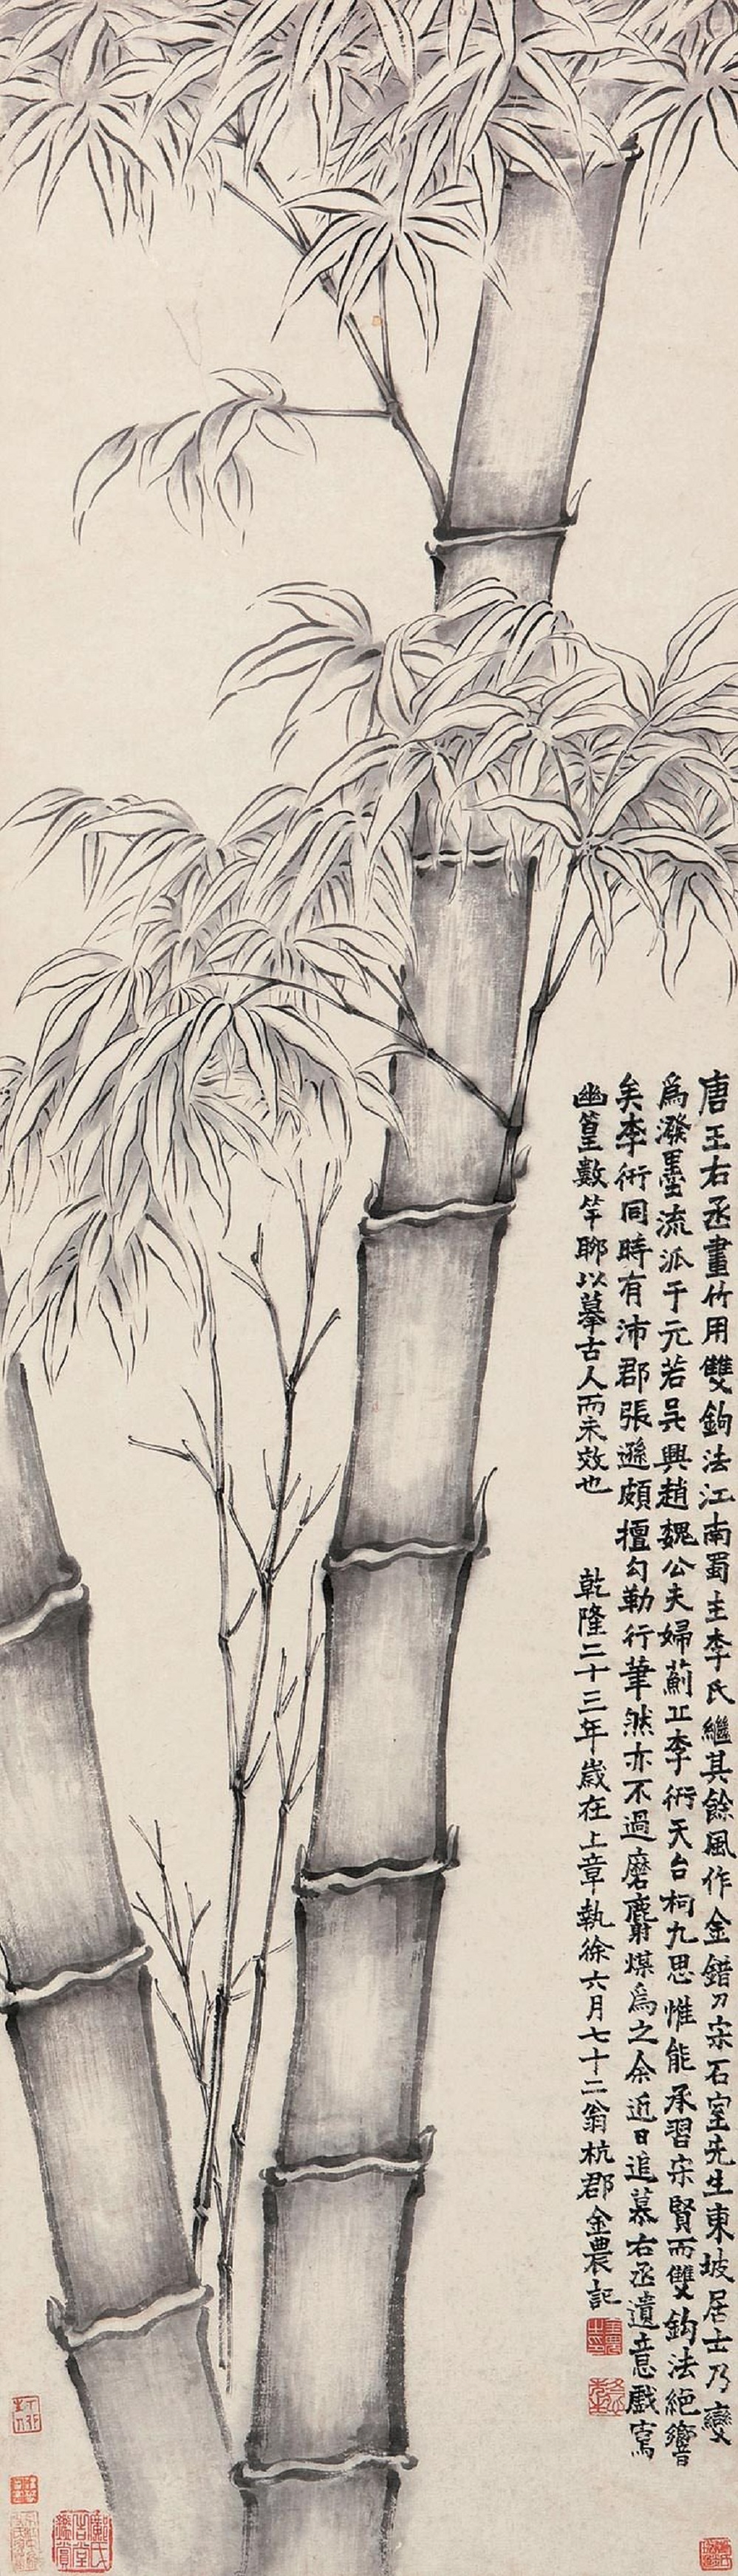 唐王右丞畫竹用雙鉤法江南蜀主李氏繼其餘風作金錯刀宋石室先生東坡居士乃變
為潑墨流派于元若吳興趙魏公夫婦薊丘李衎天台柯九思惟能承習宋賢而雙鉤法絕響
矣李衎同時有沛郡張遜頗擅勾勒行筆然亦不過磨麝煤為之余近日追慕右丞遺意戲寫
幽篁數竿聊以摹古人而未效也 乾隆二十三年歲在上章執徐六月七十二翁杭郡金農記